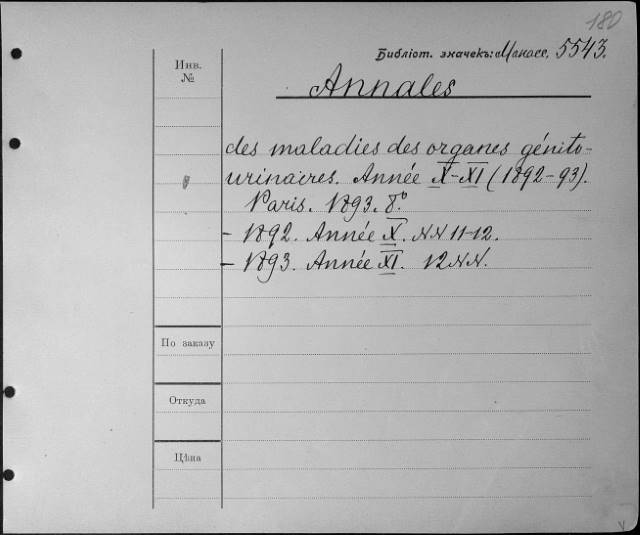 180
Библіот. значекъ: Манасс. 5543.
Инв.
№
Annales
des maladies des organes génito-
urinaires. Année X-XI (1892-93).
Paris. 1893. 8°.
- 1892. Année X. NN 11-12.
- 1893. Année XI. 12 NN.
По заказу
Откуда
Цѣна